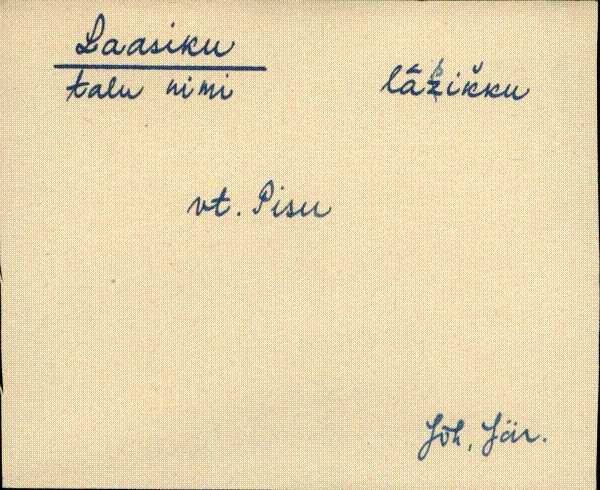 Laasiku
talu nimi lāzikku
vt. Pisu
Jõh, Jär.